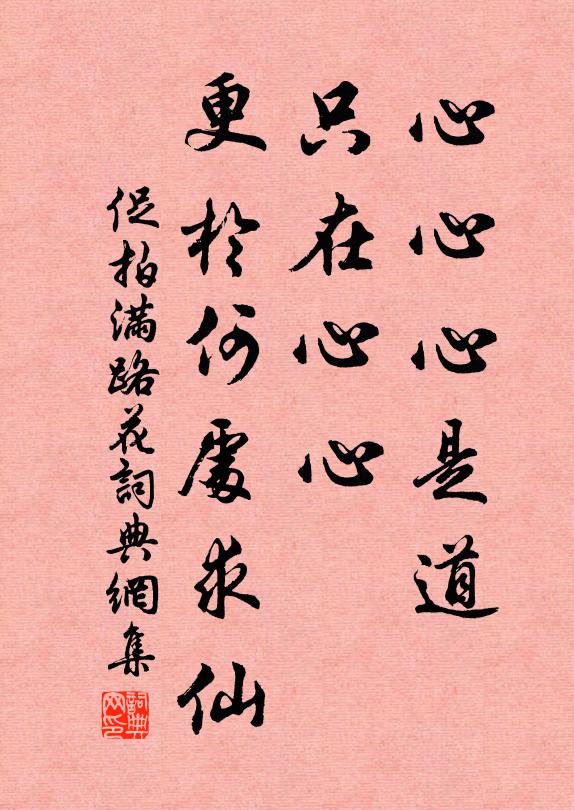 心心心是道
只在心心
更於何處求仙
促拍滿路花詞典網集
詞典网印